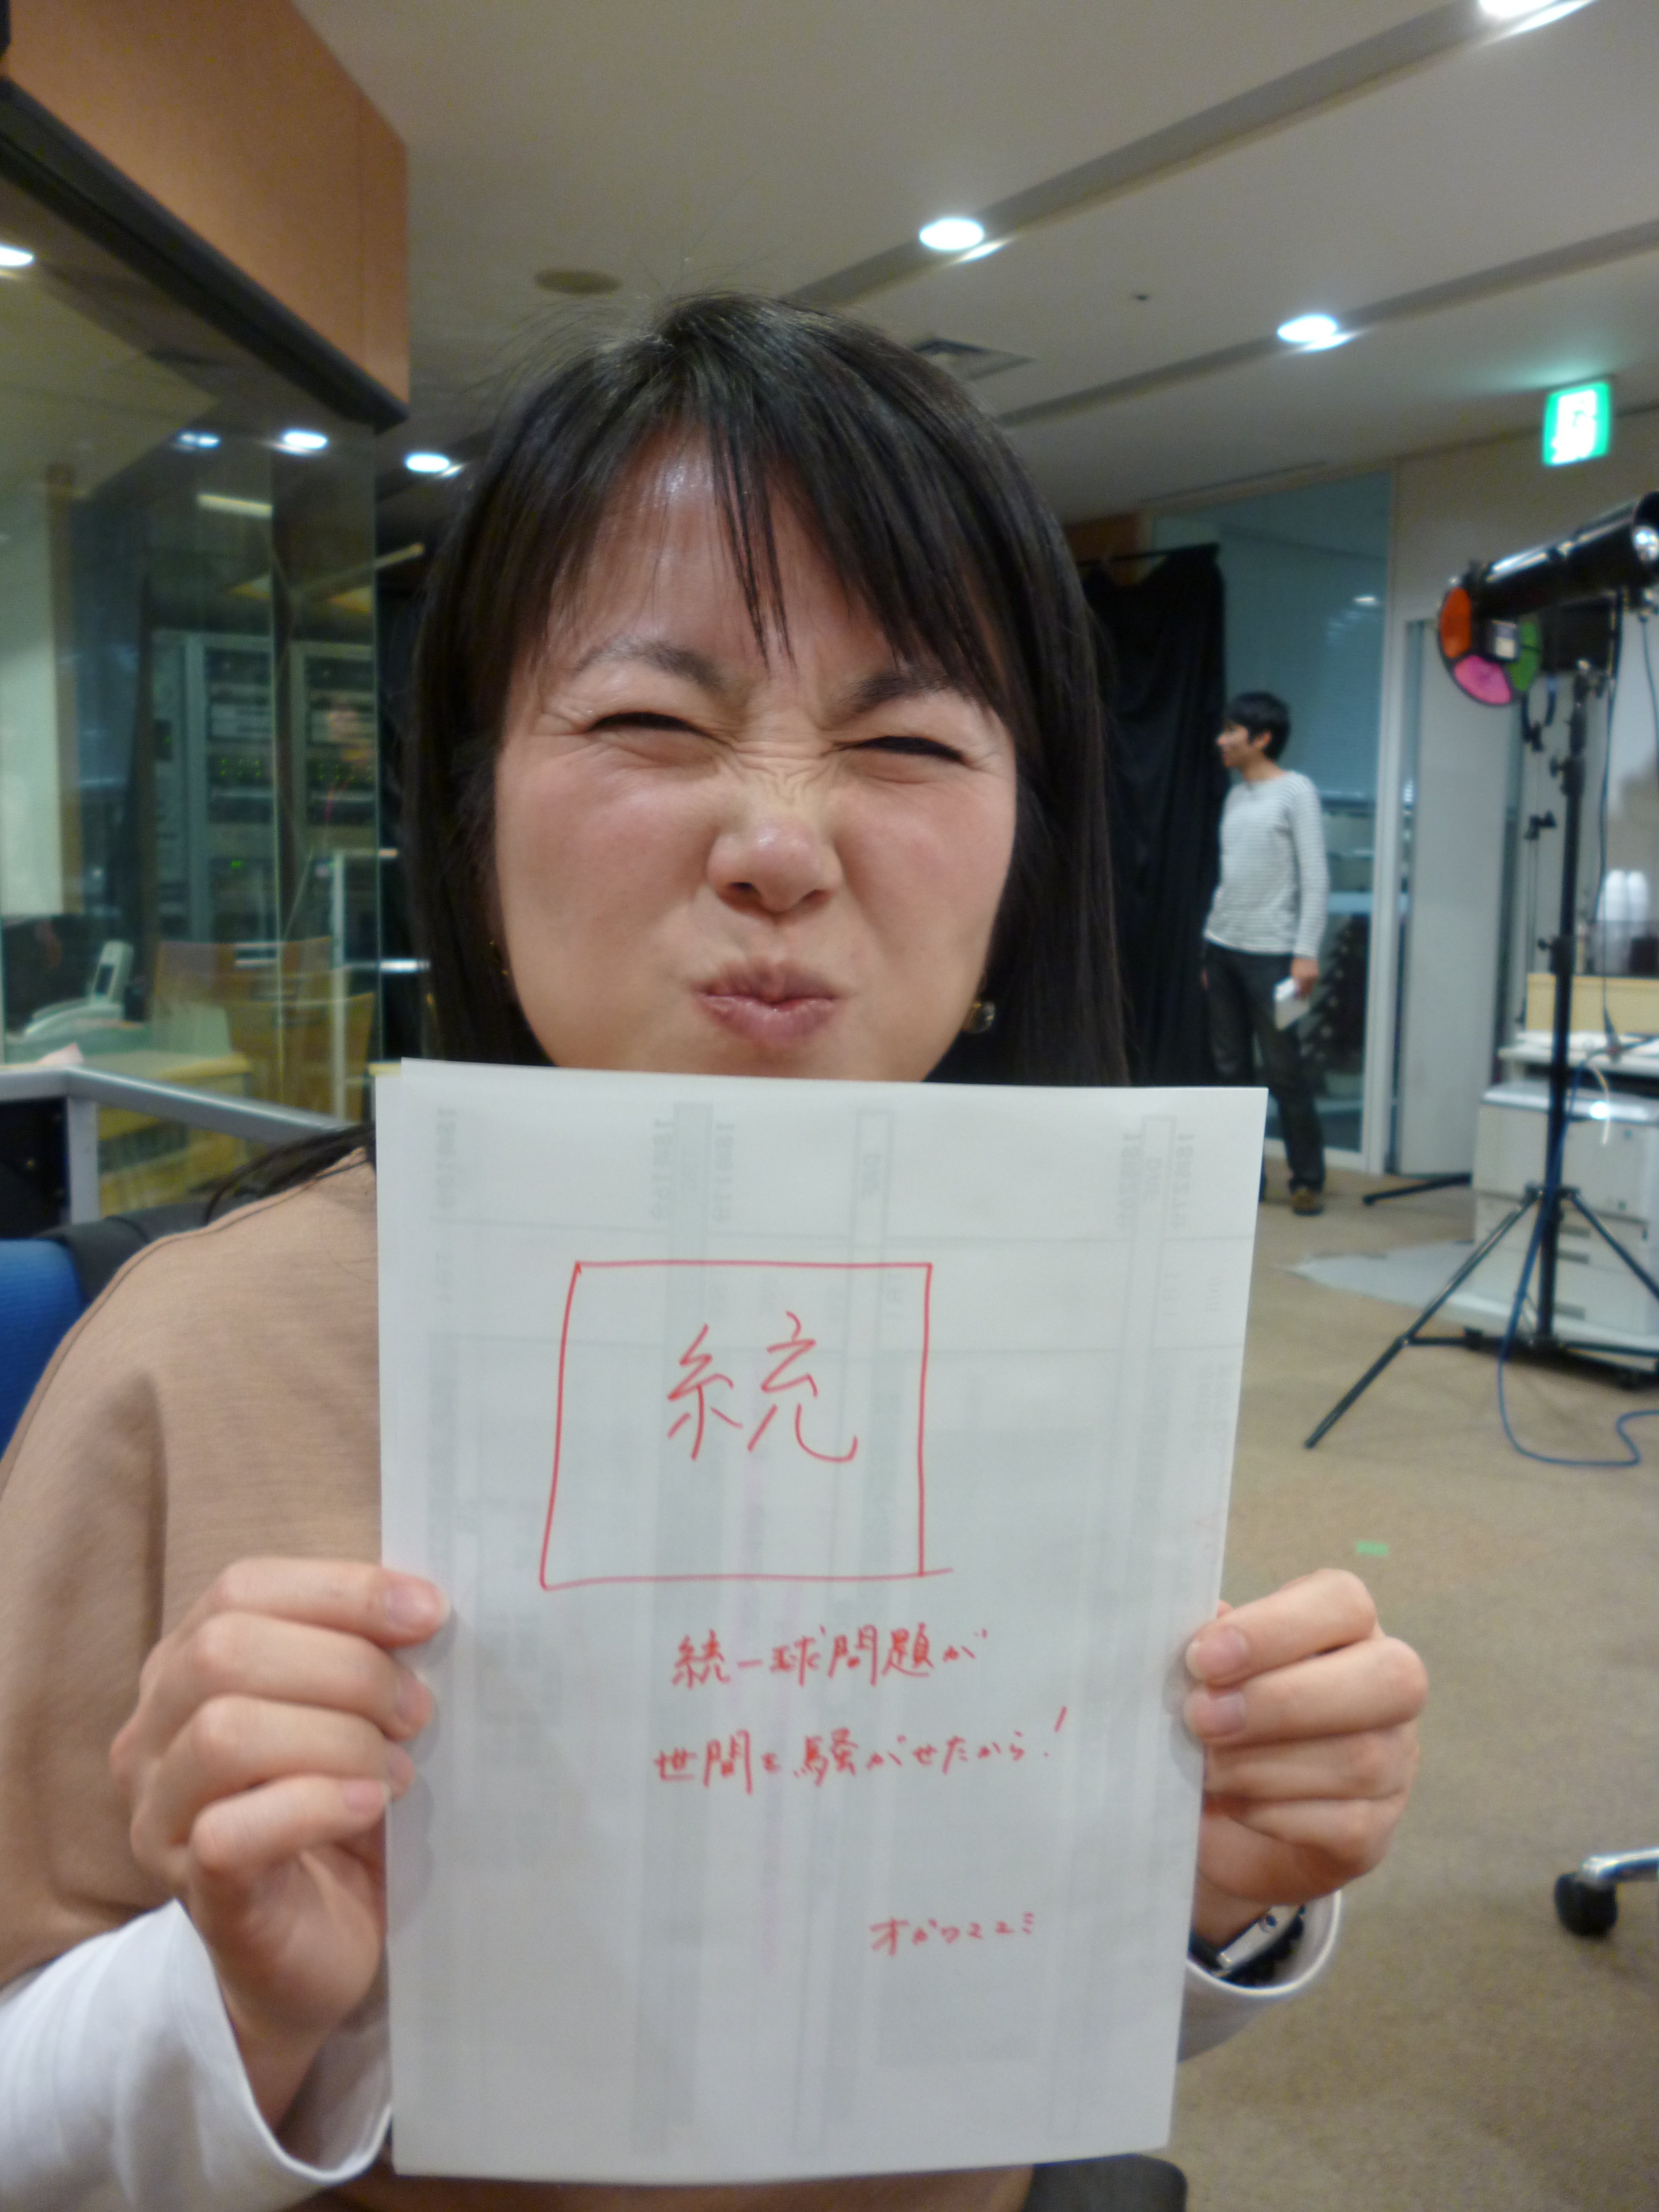 統
統一球問題が
世間を騒がせたから!
オガワマユミ